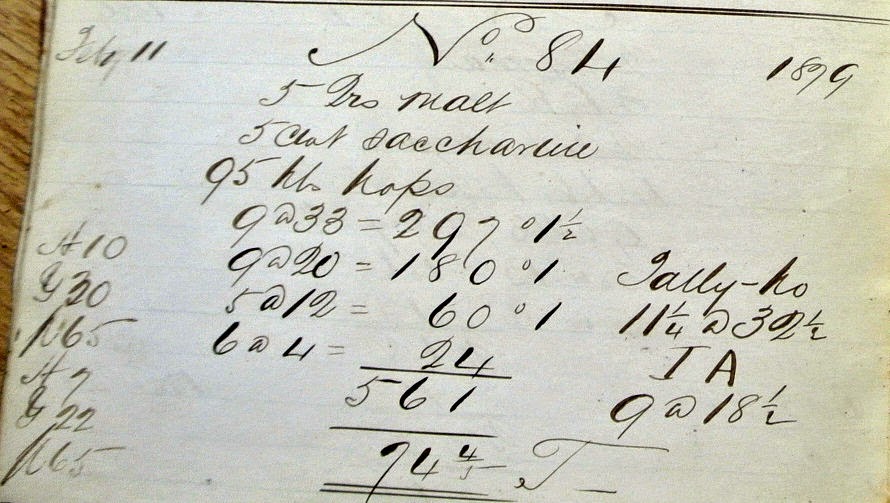 Feby 11 No 84 1899
5 Qrs malt
5 cwt saccharine
95 lbs hops
9 @ 33 = 297 ° 1½
A 10 9 @ 20 = 180 ° 1 Tally-ho
G 30 5 @ 12 = 60 ° 1 11¼ @ 32½
N 65 6 @ 4 = 24 I A
A 7 561 9 @ 18½
G 22
N 65 74 4/5 T